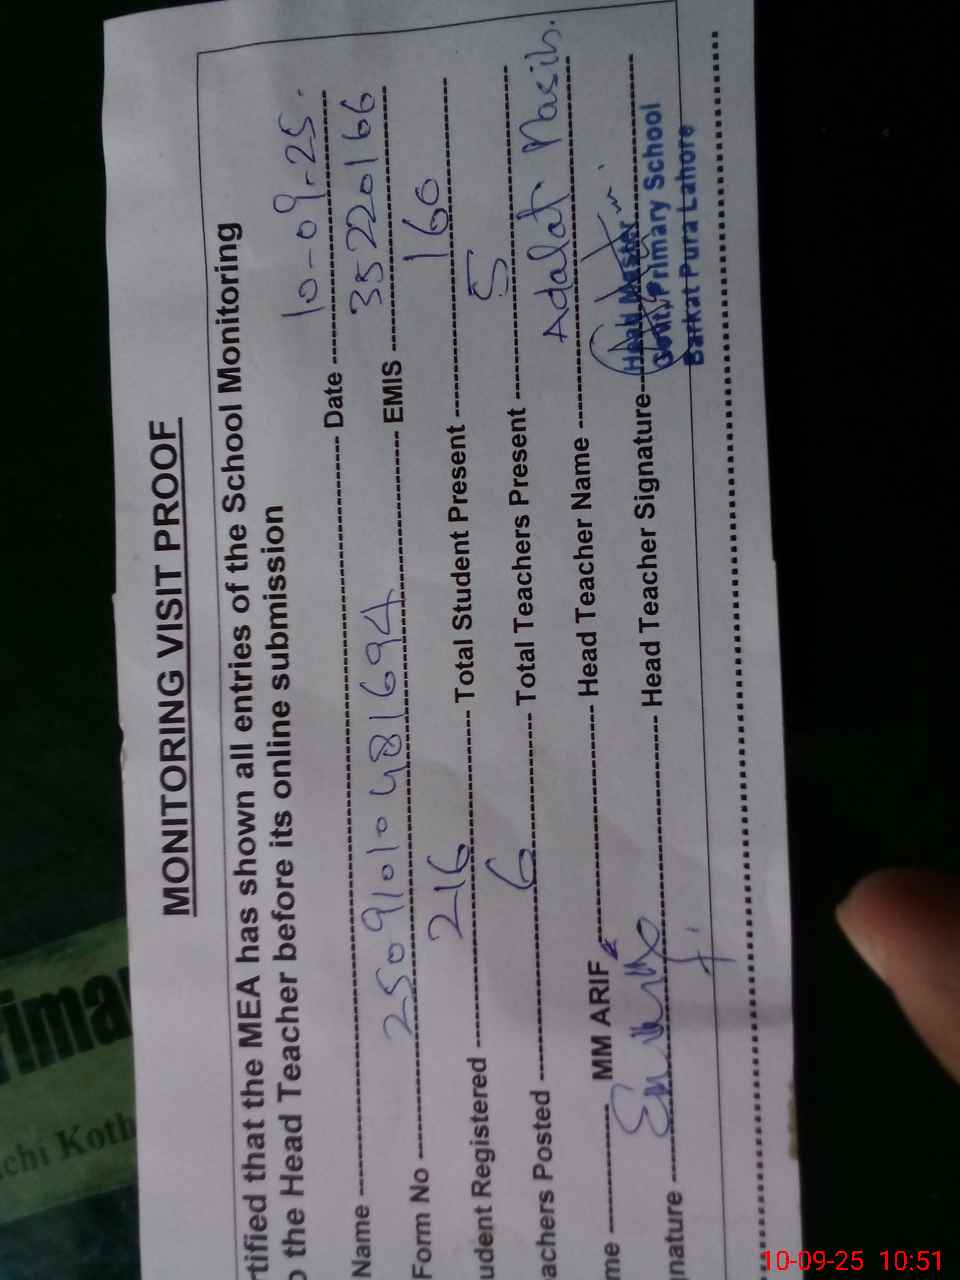 MONITORING VISIT PROOF
rtified that the MEA has shown all entries of the School Monitoring
the Head Teacher before its online submission
Name Date 10-09-25.
Form No 25091010481694 EMIS 35220166
udent Registered 216 Total Student Present 160
achers Posted 6 Total Teachers Present 5
me MM ARIF Head Teacher Name Adalat Masih.
nature Head Teacher Signature
Head Master
Govt. Primary School
Barkat Pura Lahore
rimar
chi Koth
10-09-25 10:51